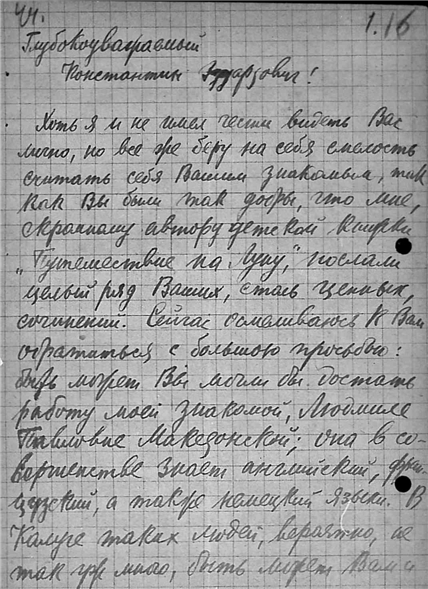 44.
1.16
Глубокоуважаемый
Константин Эдуардович!
Хоть я и не имел чести видеть Вас
лично, но все же беру на себя смелость
считать себя Вашим знакомым, так
как Вы были так добры, что мне,
скромному автору детской книжки
„Путешествие на Луну,“ послали
целый ряд Ваших, столь ценных,
сочинений. Сейчас осмеливаюсь к Вам
обратиться с большою просьбою:
быть может Вы могли бы достать
работу моей знакомой, Людмиле
Павловне Македонской; она в со-
вершенстве знает английский, фран-
цузский, а также немецкий языки. В
Калуге таких людей, вероятно, не
так уж много, быть может Вам и